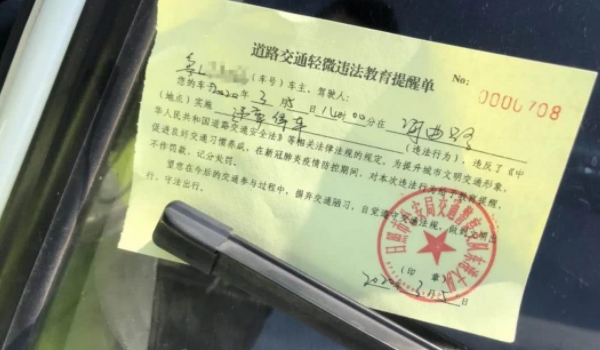 道路交通轻微违法教育提醒单
No: 0000708
鲁L (车号)车主、驾驶人:
您的车于2020年3月5日 时00分在
(地点)实施 违章停车 (违法行为),违反了《中
华人民共和国道路交通安全法》等相关法律法规的规定,为提升城市文明交通形象,
促进良好交通习惯养成,在新冠肺炎疫情防控期间,对本次违法行为给予教育提醒,
不作罚款、记分处罚。
望您在今后的交通参与过程中,摒弃交通陋习,自觉遵守交通法规,做到文明出
行、守法出行。
日照市公安局交通警察支队东港大队
(印 章)
2020年3月5日